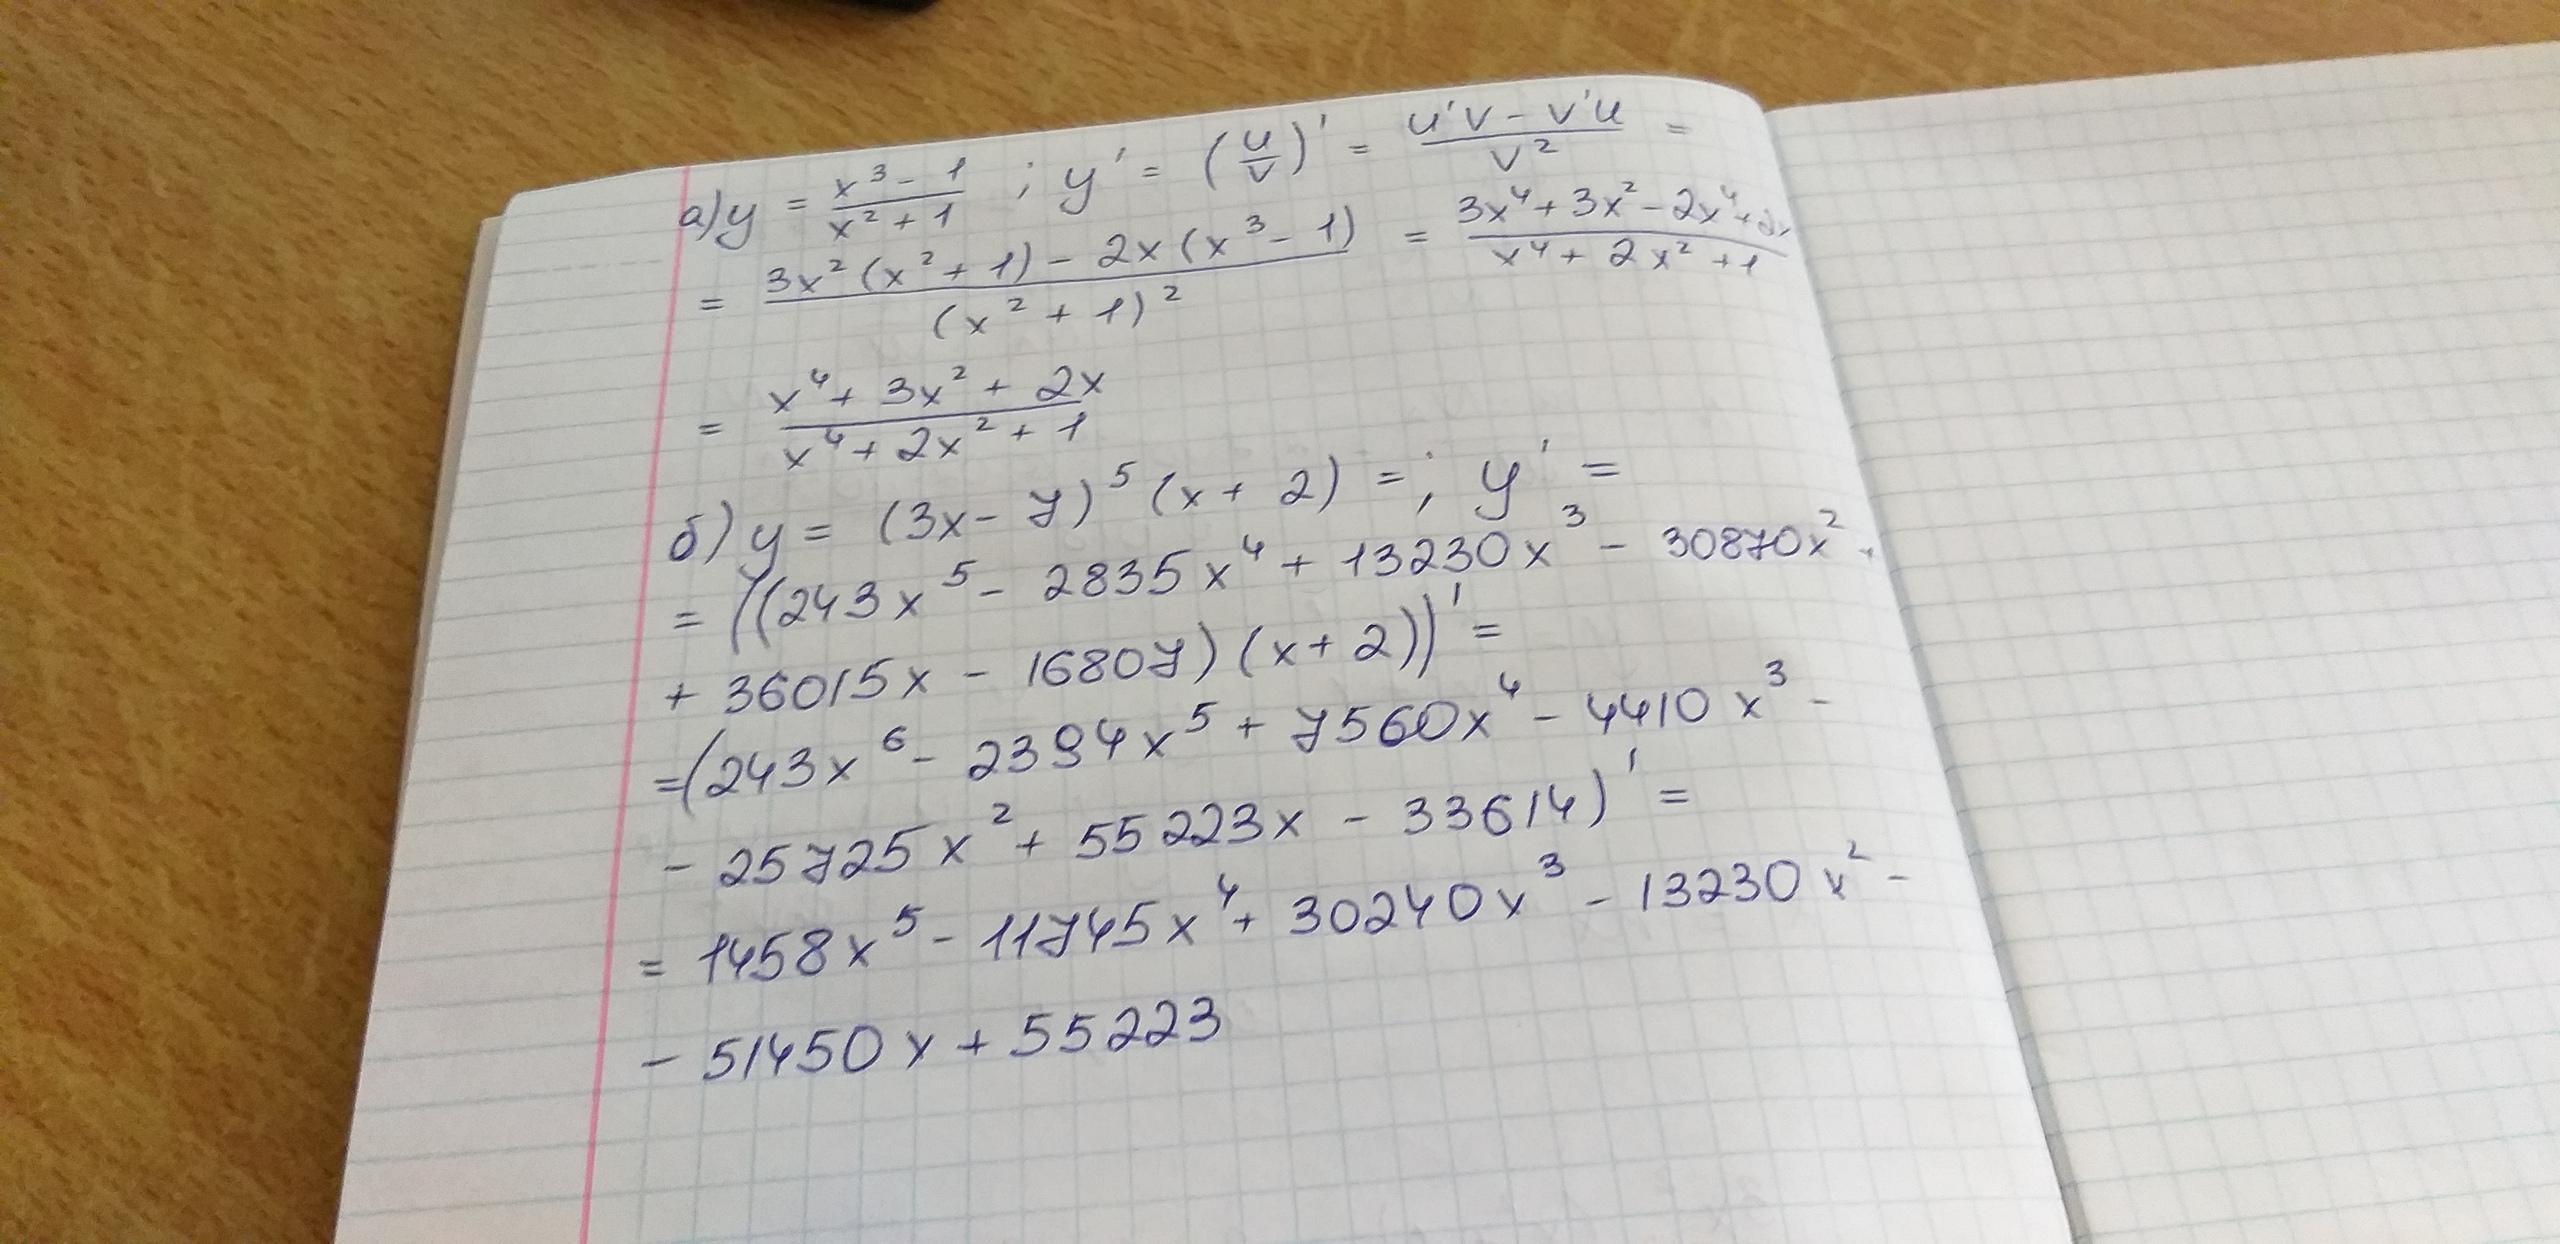 а) y = (x³ - 1)/(x² + 1) ; y' = (u/v)' = (u'v - v'u)/v² =
= (3x²(x² + 1) - 2x(x³ - 1))/(x² + 1)² = (3x⁴ + 3x² - 2x⁴ + 2x)/(x⁴ + 2x² + 1)
= (x⁴ + 3x² + 2x)/(x⁴ + 2x² + 1)
б) y = (3x - 7)⁵ (x + 2) = ; y' =
= ((243x⁵ - 2835x⁴ + 13230x³ - 30870x² +
+ 36015x - 16807) (x + 2))' =
= (243x⁶ - 2394x⁵ + 7560x⁴ - 4410x³ -
- 25725x² + 55223x - 33614)' =
= 1458x⁵ - 11745x⁴ + 30240x³ - 13230x² -
- 51450x + 55223